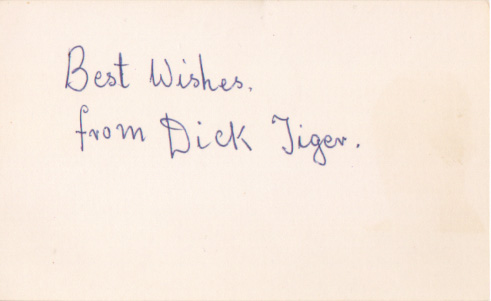 Best Wishes.
from Dick Tiger.